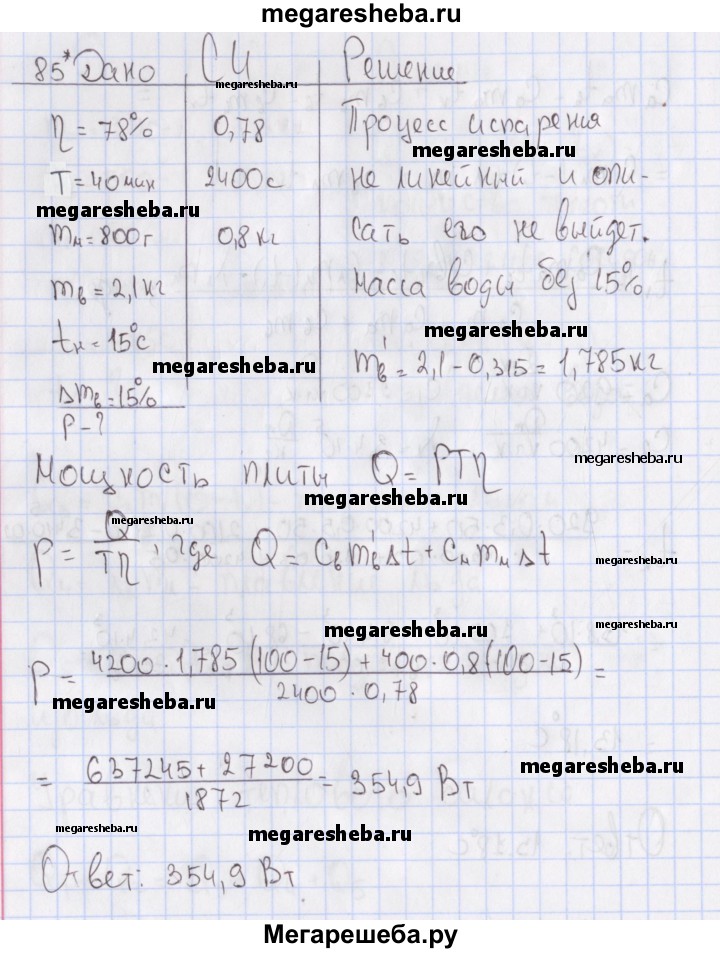 megaresheba.ru
85* Дано СИ Решение
megaresheba.ru
η = 78% 0,78 Процесс испарения
megaresheba.ru
T = 40 мин 2400 с не линейный и опи-
megaresheba.ru
mм = 800 г 0,8 кг сать его не выйдет.
mв = 2,1 кг Масса воды без 15%.
megaresheba.ru
tн = 15°С
megaresheba.ru
m'в = 2,1 - 0,315 = 1,785 кг
Δmв = 15%
P - ?
megaresheba.ru
Мощность плиты Q = PTη
megaresheba.ru
megaresheba.ru
P = Q/Tη, где Q = Cв m'в Δt + Cм mм Δt
megaresheba.ru
megaresheba.ru
megaresheba.ru
P = 4200 · 1,785 (100 - 15) + 400 · 0,8 (100 - 15) / 2400 · 0,78 =
megaresheba.ru
= 637245 + 27200 / 1872 = 354,9 Вт
megaresheba.ru
megaresheba.ru
megaresheba.ru
Ответ: 354,9 Вт
Мегарешеба.ру